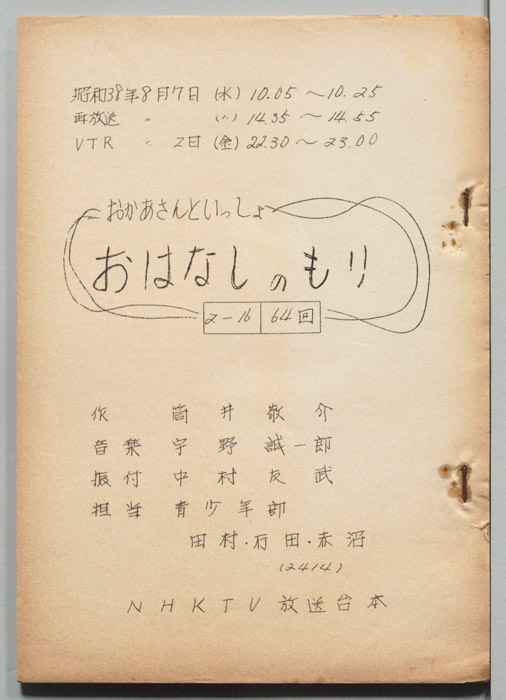 昭和38年8月7日 (水) 10.05～10.25
再放送 〃 (〃) 14.35～14.55
VTR 〃 2日 (金) 22.30～23.00
おかあさんといっしょ
おはなしのもり
2-16 64回
作 筒井敬介
音楽 宇野誠一郎
振付 中村友武
担当 青少年部
田村・石田・赤沼
(2414)
NHKTV 放送台本